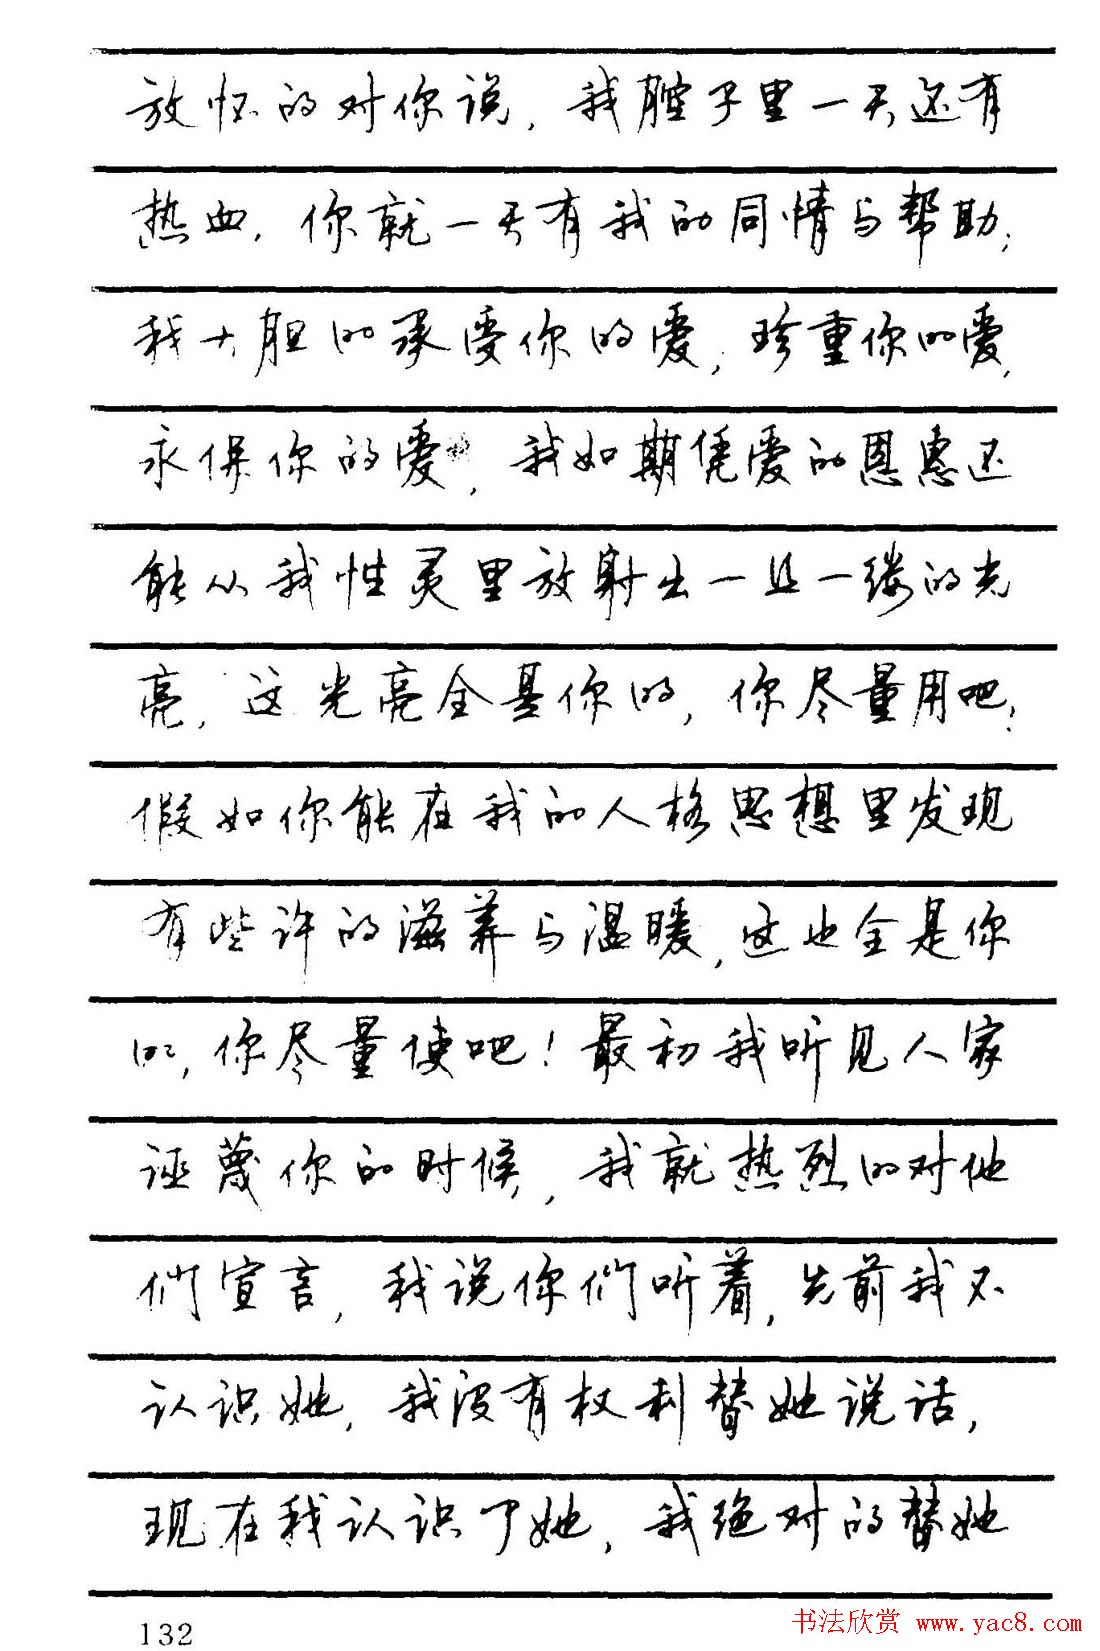 放怀的对你说，我腔子里一天还有
热血，你就一天有我的同情与帮助；
我大胆的承受你的爱，珍重你的爱，
永保你的爱，我如期凭爱的恩惠还
能从我性灵里放射出一丝一缕的光
亮，这光亮全是你的，你尽量用吧！
假如你能在我的人格思想里发现
有些许的滋养与温暖，这也全是你
的，你尽量使吧！最初我听见人家
诬蔑你的时候，我就热烈的对他
们宣言，我说你们听着，先前我不
认识她，我没有权利替她说话，
现在我认识了她，我绝对的替她
132
书法欣赏 www.yac8.com